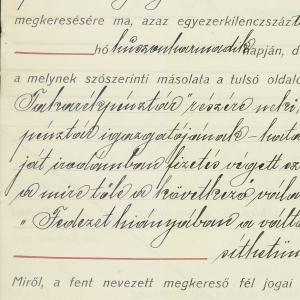 megkeresésére ma, azaz egyezerkilenczszáz
hó huszonharmadik napján, d
a melynek szószerinti másolata a tulsó oldalo
Takarékpénztár" részére neki,
pénztár igazgatójának - hata
ját irodámban fizetés végett sz
a mire tőle a következő vála
"Fedezet hiányában a váltó
sithetün
Miről, a fent nevezett megkereső fél jogai